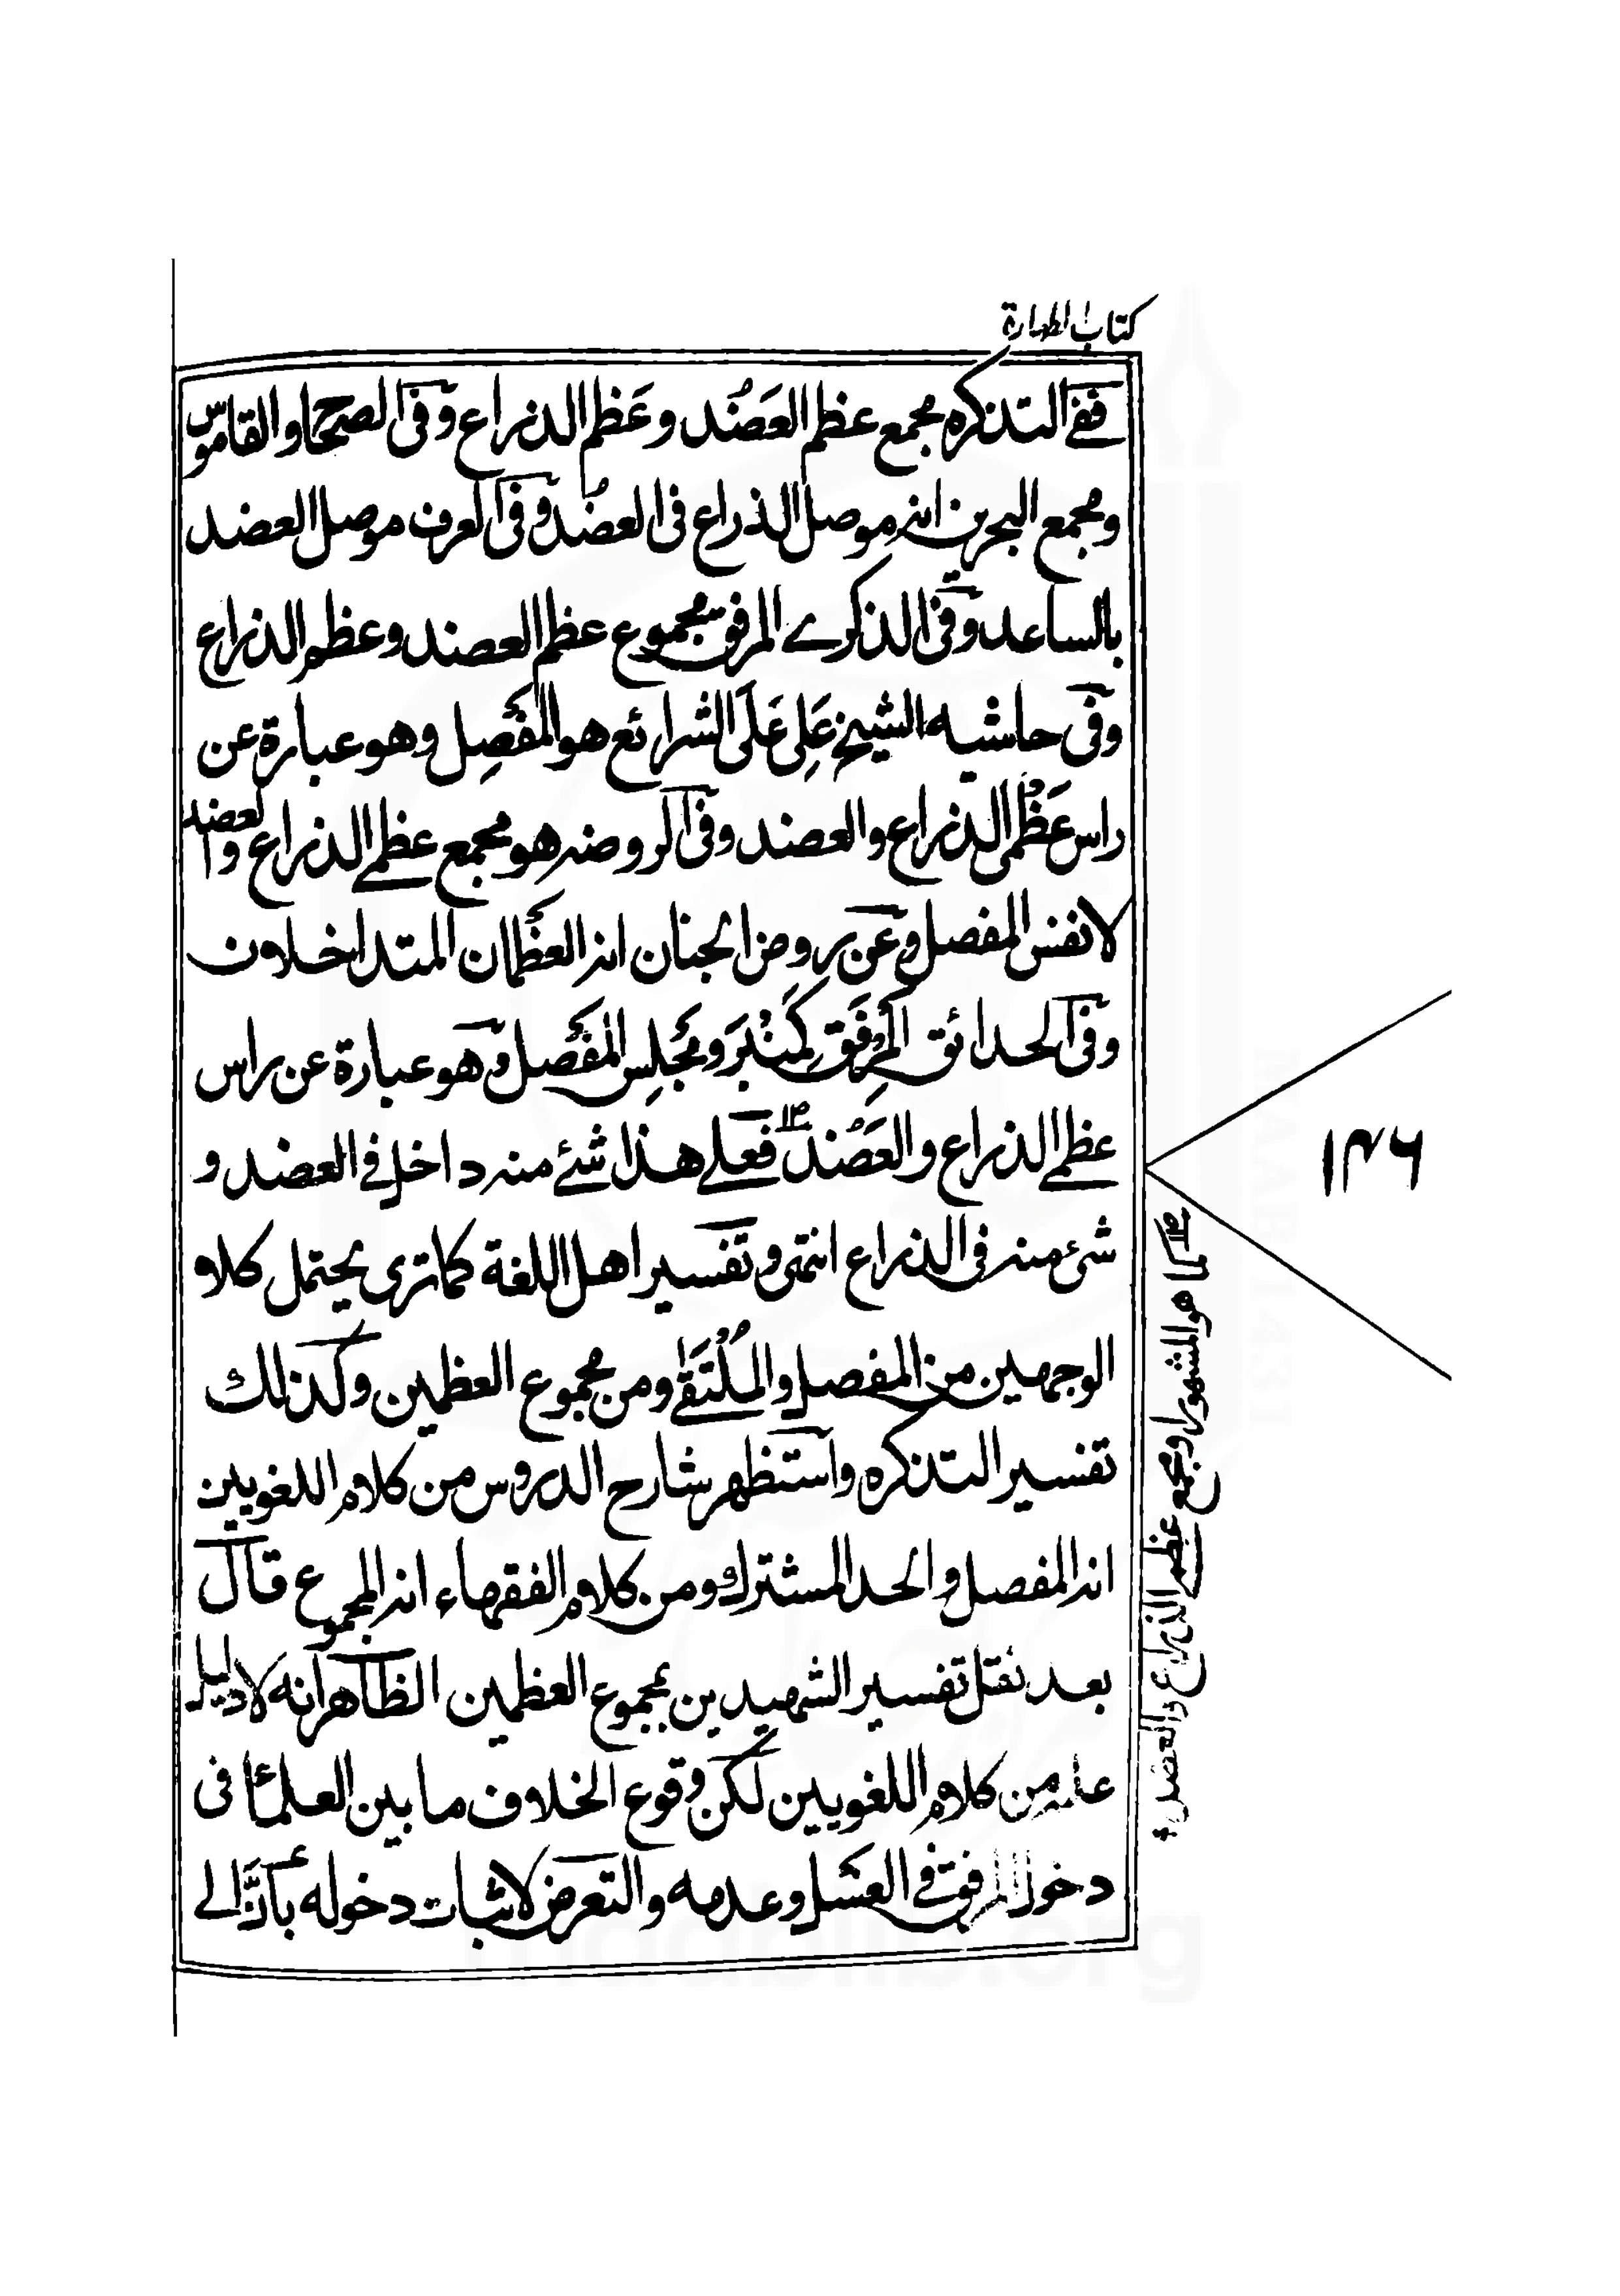 كتاب الطهارة
ففى التذكره مجمع عظم العَضُد وعَظم الذراع وفى الصحاح والقاموس
ومجمع البحرين انه موصل الذراع فى العضُد وفى العرف موصل العضد
بالساعد وفى الذكرے المرفق مجموع عظم العضد وعظم الذراع
وفى حاشيه الشيخ عَلِى عَلَى الشرائع هو المَفْصِل وهو عبارة عن
راس عَظْمَى الذراع والعضد وفى الروضه هو مجمع عظمے الذراع والعضد
لا نفس المفصل وعن روض الجنان انه العظْمان المتداخلان
وفى الحدائق المِرْفَق كَمِنْبَر ومَجْلِس المَفْصِل وهو عبارة عن راس
عظمے الذراع والعَضُد فعلے هذا شئ منه داخل فے العضد و
شئ منه فى الذراع انتهى وتفسير اهل اللغة كما ترى يحتمل كلا و
الوجهين من المفصل والمُلْتَقٰے ومن مجموع العظمين وكذلك
تفسير التذكره واستظهر شارح الدروس من كلام اللغويين
انه المفصل والحد المشترك ومن كلام الفقهاء انه المجموع قال
بعد نقل تفسير الشهيدين بمجموع العظمين الظاهر انه لا دليل
عليه من كلام اللغويين لكن وقوع الخلاف ما بين العلماء فى
دخول المرفق فے الغسل وعدمه والتعرض لاثبات دخوله بأنَّ الے
١٤٦
كما هو المشهور او مجمع عظمے الذراع والعضد